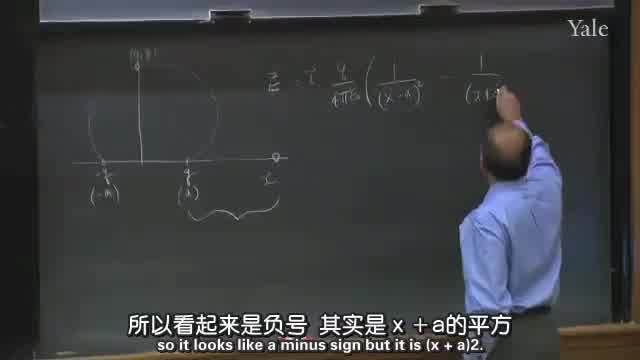 Yale
(0, y)
E = i q/4πε₀ ( 1/(x-a)² - 1/(x+a)
-q q x
(-a) (a)
所以看起来是负号 其实是 x +a的平方
so it looks like a minus sign but it is (x + a)2.